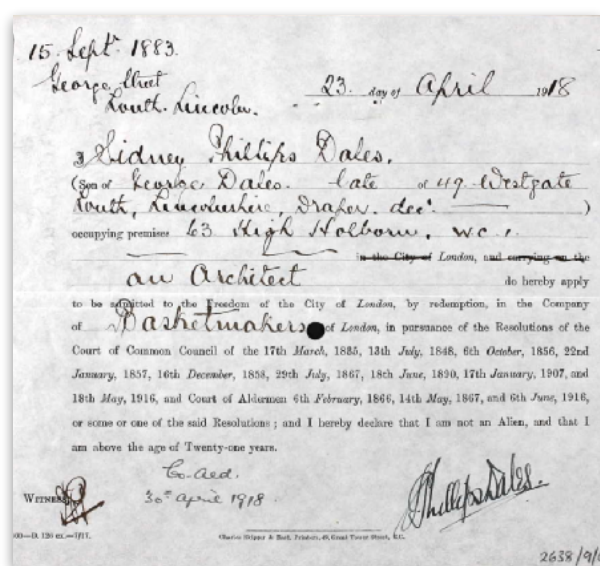 15. Septr. 1883.
George Street
Louth. Lincoln.
23. day of April 1918
I Sidney Phillips Dales.
(Son of George Dales. late of 49 Westgate
Louth, Lincolnshire Draper. decd. )
occupying premises 63 High Holborn. W.C.1.
in the City of London, and carrying on the
an Architect do hereby apply
to be admitted to the Freedom of the City of London, by redemption, in the Company
of Basketmakers of London, in pursuance of the Resolutions of the
Court of Common Council of the 17th March, 1835, 13th July, 1848, 6th October, 1856, 22nd
January, 1857, 16th December, 1858, 29th July, 1867, 18th June, 1890, 17th January, 1907, and
18th May, 1916, and Court of Aldermen 6th February, 1866, 14th May, 1867, and 6th June, 1916,
or some or one of the said Resolutions; and I hereby declare that I am not an Alien, and that I
am above the age of Twenty-one years.
Co. Aed.
30th April 1918.
WITNESS
S Phillips Dales.
Charles Skipper & East, Printers, 49, Great Tower Street, E.C.
2638/9/